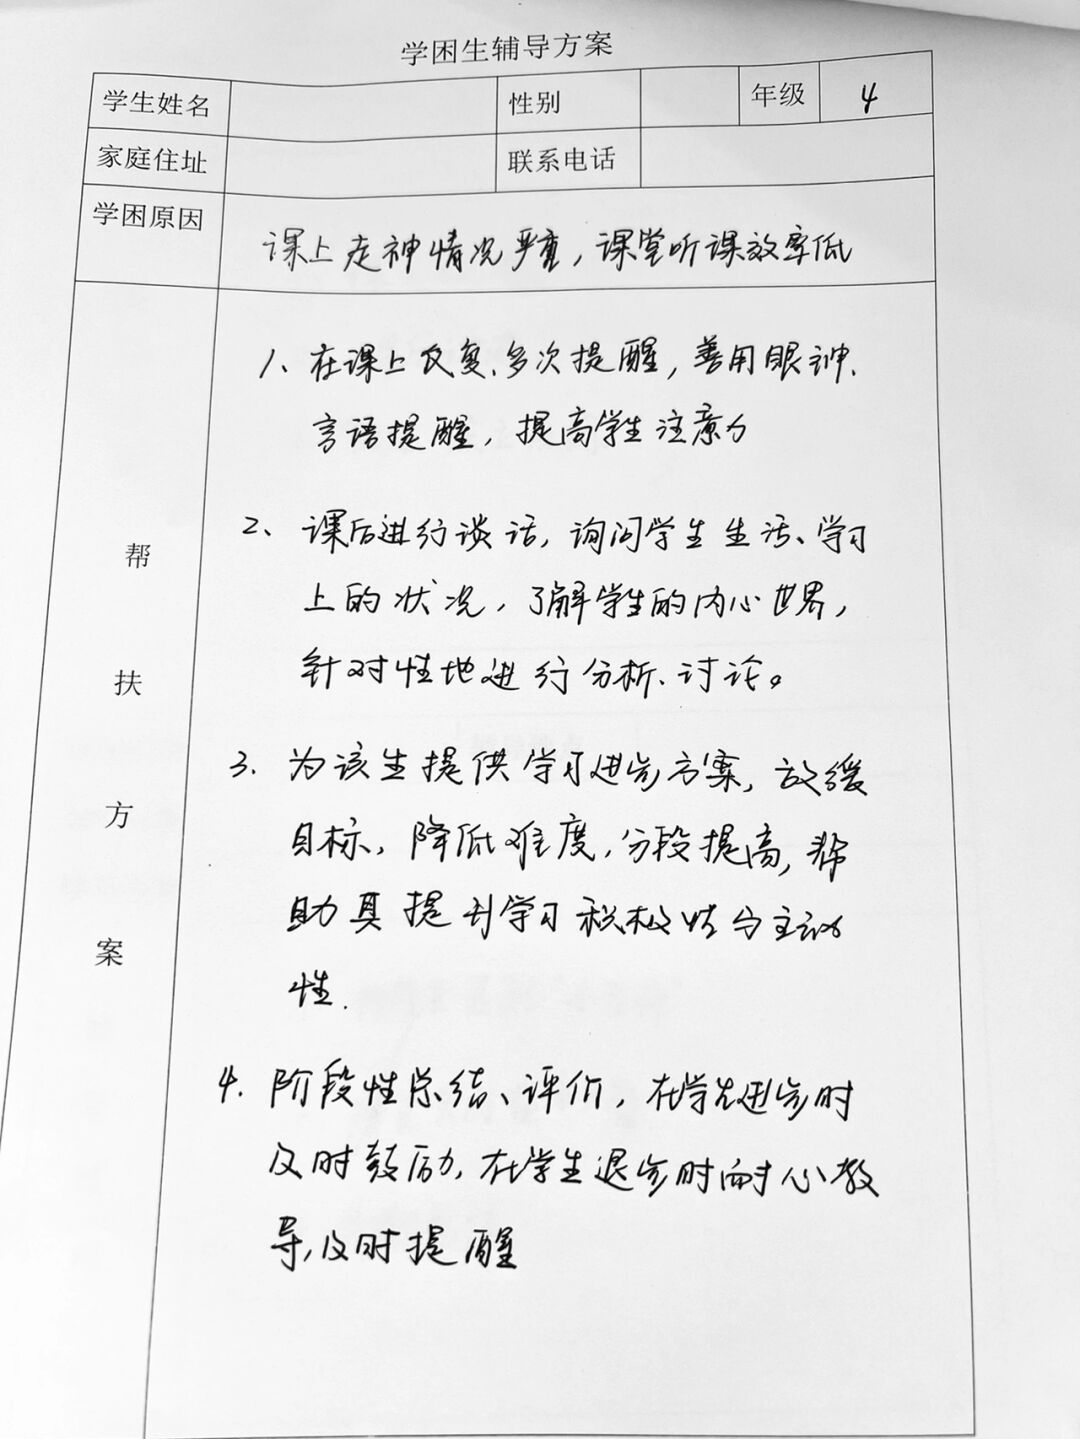 学困生辅导方案
学生姓名 性别 年级 4
家庭住址 联系电话
学困原因
课上走神情况严重，课堂听课效率低
帮扶方案
1、在课上反复、多次提醒，善用眼神、
言语提醒，提高学生注意力
2、课后进行谈话，询问学生生活、学习
上的状况，了解学生的内心世界，
针对性地进行分析、讨论。
3、为该生提供学习进步方案，放缓
目标，降低难度，分段提高，帮
助其提升学习积极性与主动
性.
4、阶段性总结、评价，在学生进步时
及时鼓励，在学生退步时耐心教
导，及时提醒